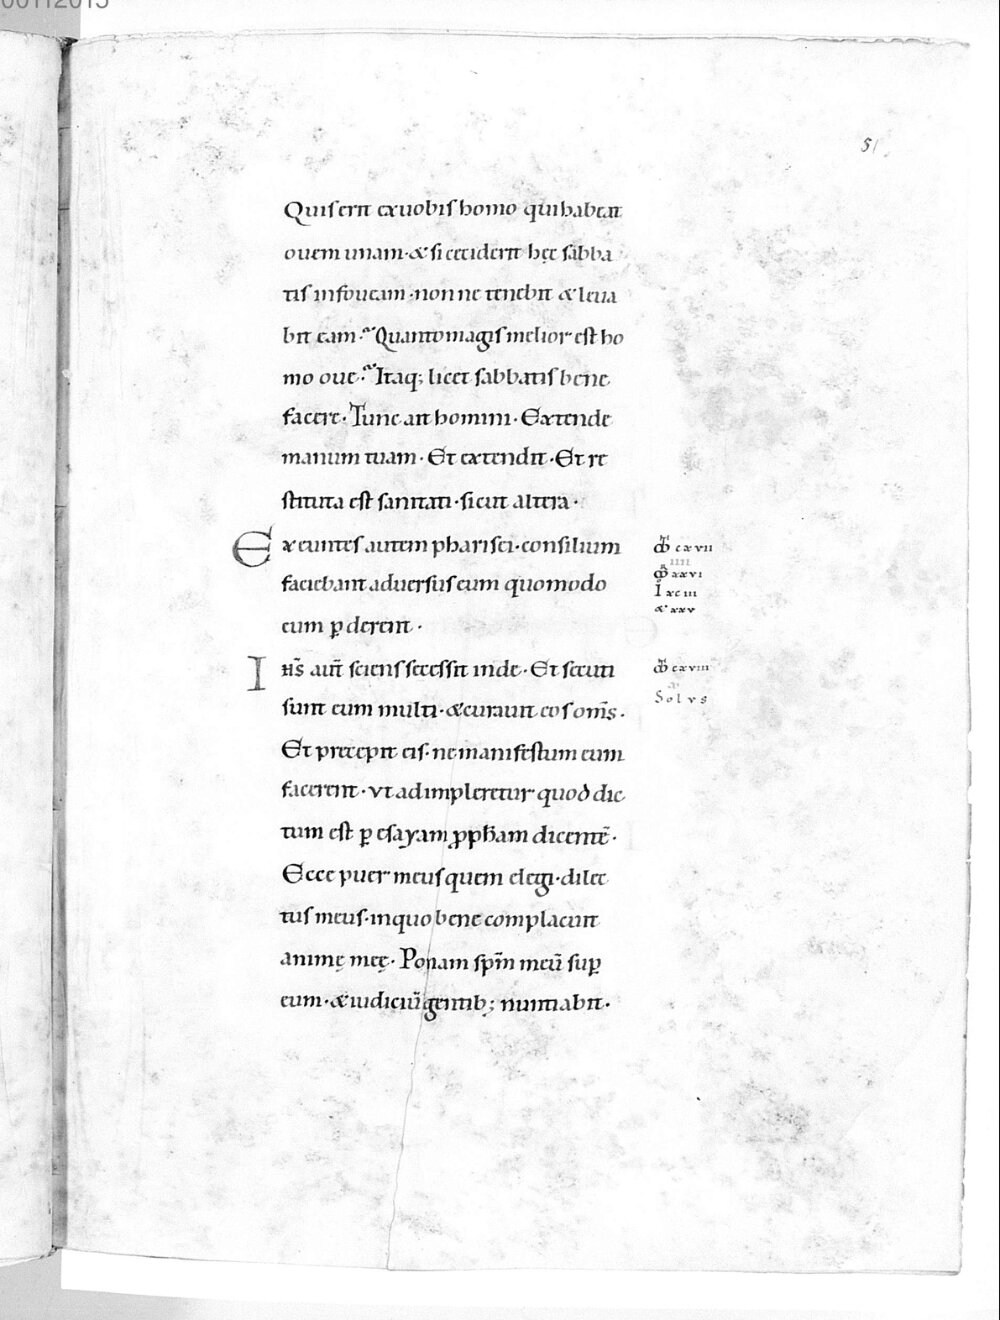 51
Quis erit ex uobis homo qui habeat
ouem unam · & si ceciderit hęc sabba
tis in foueam · nonne tenebit & leua
bit eam · Quanto magis melior est ho
mo oue · Itaq; licet sabbatis bene
facere · Tunc ait homini · Extende
manum tuam · Et extendit · Et re
stituta est sanitati · sicut altera ·
Exeuntes autem pharisei · consilium
faciebant aduersus eum quomodo
eum ꝑderent ·
Ihs̄ aut̄ sciens secessit inde · Et secuti
sunt eum multi · & curauit eos om̄s ·
Et precepit eis · ne manifestum eum
facerent · vt adimpleretur quod dic
tum est ꝑ esayam ꝓpħam dicentē ·
Ecce puer meus quem elegi · dilec
tus meus · in quo bene complacuit
animę meę · Ponam sp̄m meū suꝑ
eum · & iudiciū gentib; nuntiabit ·
cxvii
iiii
xxvi
I xciii
& xxv
cxviii
x
Solvs